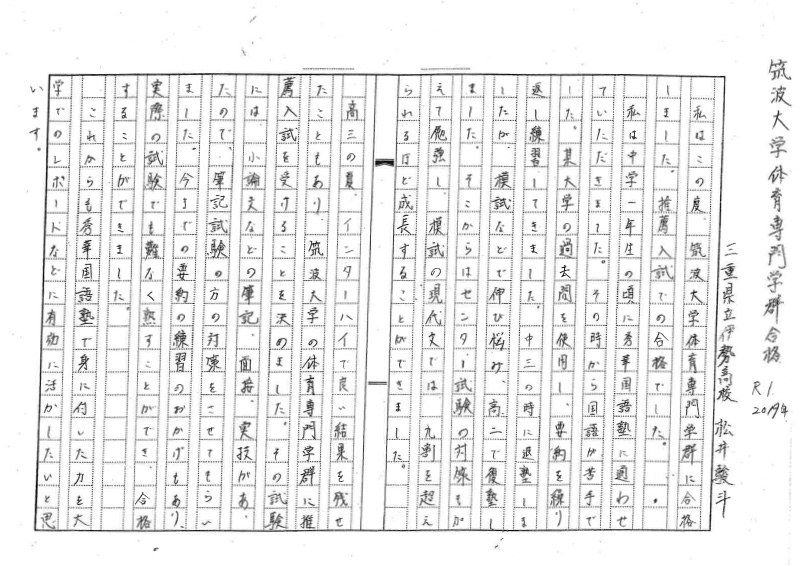 筑波大学体育専門学群合格
R1.
2019年
三重県立伊勢高校 松井駿斗
私はこの度、筑波大学体育専門学群に合格
しました。推薦入試での合格でした。
私は中学一年生の頃に秀華国語塾に通わせ
ていただきました。その時から国語が苦手で
した。某大学の過去問を使用し、要約を練り
返し練習してきました。中三の時に退塾しま
したが、模試などで伸び悩み、高二で復塾し
ました。そこからはセンター試験の対策もか
えて勉強し、模試の現代文では、九割を超え
られるほど成長することができました。
高三の夏、インターハイで良い結果を残せ
たこともあり、筑波大学の体育専門学群に推
薦入試を受けることを決めました。その試験
には、小論文などの筆記、面接、実技があっ
たので、筆記試験の方の対策をさせてもらい
ました。今までの要約の練習のおかげもあり、
実際の試験でも難なく熟すことができ、合格
することができました。
これからも秀華国語塾で身に付いた力を大
学でのレポートなどに有効に活かしたいと思
います。